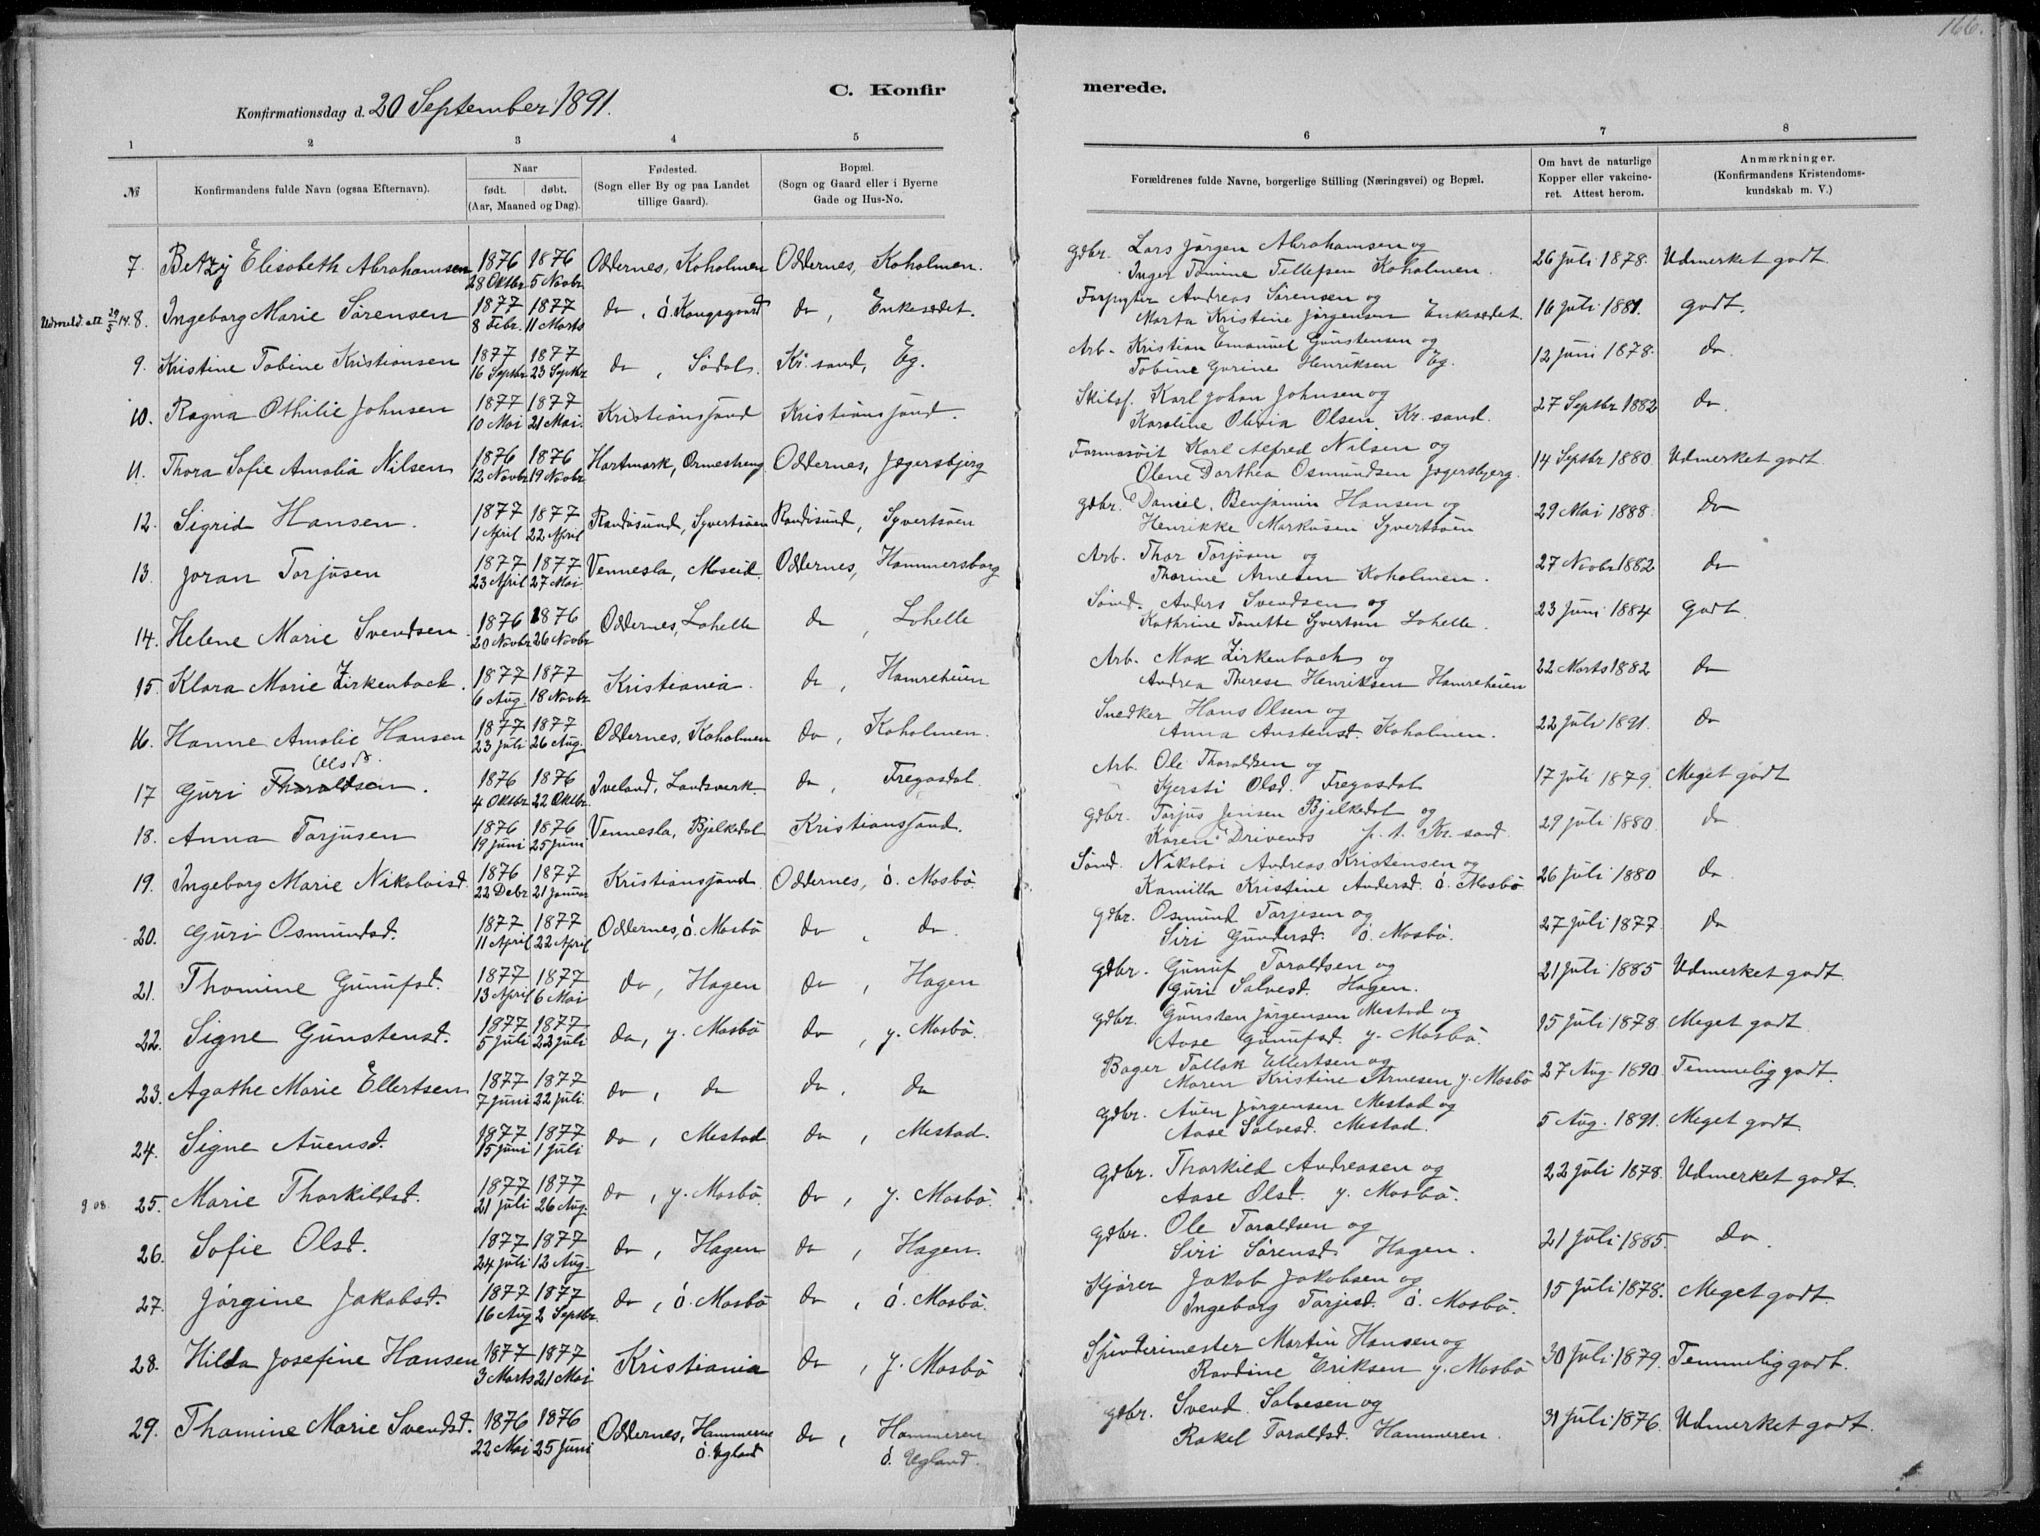 166.
C. Konfirmerede.
Konfirmationsdag d. 20 September 1891.
1 2 3 4 5 6 7 8
№ Konfirmandens fulde Navn (ogsaa Efternavn). Naar født. døbt. (Aar, Maaned og Dag). Fødested. (Sogn eller By og paa Landet tillige Gaard). Bopæl. (Sogn og Gaard eller i Byerne Gade og Hus-No. Forældrenes fulde Navne, borgerlige Stilling (Næringsvei) og Bopæl. Om havt de naturlige Kopper eller vakcineret. Attest herom. Anmærkninger. (Konfirmandens Kristendomskundskab m. V.)
7. Betzy Elisabeth Abrahamsen 1876 28 Oktbr 1876 5 Novbr Oddernes, Koholmen Oddernes, Koholmen. Gdbr. Lars Jørgen Abrahamsen og Inger Tomine Tellefsen Koholmen. 26 Juli 1878. Udmerket godt.
Udmeld. att 29/5 14. 8. Ingeborg Marie Sørensen 1877 8 Febr. 1877 11 Marts do, ó. Kongsgaard do, Enkesædet. Forpagter Andreas Sørensen og Marta Kristine Jørgensen Enkesædet. 16 Juli 1881. godt.
9. Kristine Tobine Kristiansen 1877 16 Septbr 1877 23 Septbr do, Sødal. Kr.sand, Eg. Arb. Kristian Emanuel Gunstensen og Tobine Gurine Henriksen Eg. 12 Juni 1878. do.
10. Ragna Othilie Johnsen 1877 10 Mai 1877 21 Mai. Kristianssand Kristianssand. Skibsf. Karl Johan Johnsen og Karoline Olivia Olsen. Kr.sand. 27 Septbr 1882 do.
11. Thora Sofie Amalia Nilsen 1876 12 Novbr 1876 19 Novbr Hartmark, Ormestreng Oddernes, Jægersbjerg Farmasöit Karl Alfred Nilsen og Olene Dorthea Osmundsen Jegersbjerg. 14 Septbr 1880. Udmerket godt.
12. Sigrid Hansen. 1877 1 April 1877 22 April Randøsund, Syvertsøen Randøsund, Syvertsøen Gdbr. Daniel Benjamin Hansen og Henrikke Markusen Syvertsøen 29 Mai 1888. do
13. Joran Torjusen 1877 23 April 1877 27 Mai Vennesla, Moseid. Oddernes, Hammersborg Arb. Thor Torjusen og Thorine Arnesen Koholmen. 27 Novbr 1882 do
14. Helene Marie Svendsen. 1876 20 Novbr 1876 26 Novbr Oddernes, Lohelle do, Lohelle Sømd. Anders Svendsen og Kathrine Tonette Syvertsen Lohelle. 23 Juni 1884 Godt.
15. Klara Marie Zirkenbach. 1877 6 Aug. 1877 18 Novbr Kristiania. do, Hamreheien Arb. Max Zirkenbach og Andrea Therese Henriksen Hamreheien 22 Marts 1882 do
16. Hanne Amalie Hansen 1877 23 Juli 1877 26 Aug. Oddernes, Koholmen do, Koholmen. Snedker Hans Olsen og Anna Austensd. Koholmen. 22 Juli 1891. do
17 Guri Thoraldsen. Olsd. 1876 4 Oktbr. 1876 22 Oktbr. Iveland, Landsverk. do, Fregasdal. Arb. Ole Thoraldsen og Kjersti Olsd. Fregasdal 17 Juli 1879. Meget godt
18. Anna Torjusen 1876 19 Juni 1876 25 Juni Vennesla, Bjelkedal Kristianssand. Gdbr. Torjus Jensen Bjelkedal og Karen Drivends p. t. Kr.sand. 29 Juli 1880. do
19. Ingeborg Marie Nikolaisd. 1876 22 Debr 1877 21 Januar Kristianssand. Oddernes, ó. Mosbö. Sömd. Nikolai Andreas Kristensen og Kamilla Kristine Andersd. ó. Mosbö. 26 Juli 1880 do.
20. Guri Osmundsd. 1877 11 April 1877 22 April Oddernes, ó. Mosbö do, do. Gdbr. Osmund Torjesen og Siri Gundersd. ó. Mosbö. 27 Juli 1877. do
21. Thomine Gunufsd. 1877 13 April 1877 6 Mai do, Hagen do, Hagen Gdbr. Gunuf Toraldsen og Guri Salvesd. Hagen. 21 Juli 1885 Udmerket godt.
22. Signe Gunstensd. 1877 5 Juli 1877 22 Juli do, y. Mosbö do, y. Mosbö. Gdbr. Gunsten Jørgensen Mestad og Aase Gunufsd. y. Mosbö. 15 Juli 1878 Meget godt
23. Agathe Marie Ellertsen 1877 7 Juni 1877 22 Juli. do, do do, do Bager Tallak Ellertsen og Maren Kristine Arnesen y. Mosbö 27 Aug 1890. Temmelig godt.
24. Signe Auensd. 1877 15 Juni 1877 1 Juli do, Mestad. do, Mestad. Gdbr. Auen Jørgensen Mestad og Aase Salvesd. Mestad. 5 Aug. 1891. Meget godt.
9 08. 25. Marie Thorkildsd. 1877 21 Juli 1877 26 Aug. do, y. Mosbö. do, y. Mosbö. Gdbr. Thorkild Andreasen og Aase Olsd. y. Mosbö. 22 Juli 1878. Udmerket godt.
26. Sofie Olsd. 1877 24 Juli 1877 12 Aug. do, Hagen do, Hagen. Gdbr. Ole Toraldsen og Siri Sørensd. Hagen. 21 Juli 1885. Do.
27. Jørgine Jakobsd. 1877 16 Aug 1877 2 Septbr. do, ó. Mosbö do, ó. Mosbö. Kjører Jakob Jakobsen og Ingeborg Torjesd. ó. Mosbö. 15 Juli 1878. Meget godt.
28. Hilda Josefine Hansen 1877 3 Marts 1877 21 Mai Kristiania do, y. Mosbö Spinderimester Martin Hansen og Randine Eriksen y. Mosbö 30 Juli 1879. Temmelig godt.
29. Thomine Marie Svendsd. 1876 22 Mai 1876 25 Juni Oddernes, Hammeren ó. Ugland do, Hammeren ó. Ugland. Gdbr. Svend Salvesen og Rakel Toraldsd. Hammeren. 31 Juli 1876. Udmerket godt.